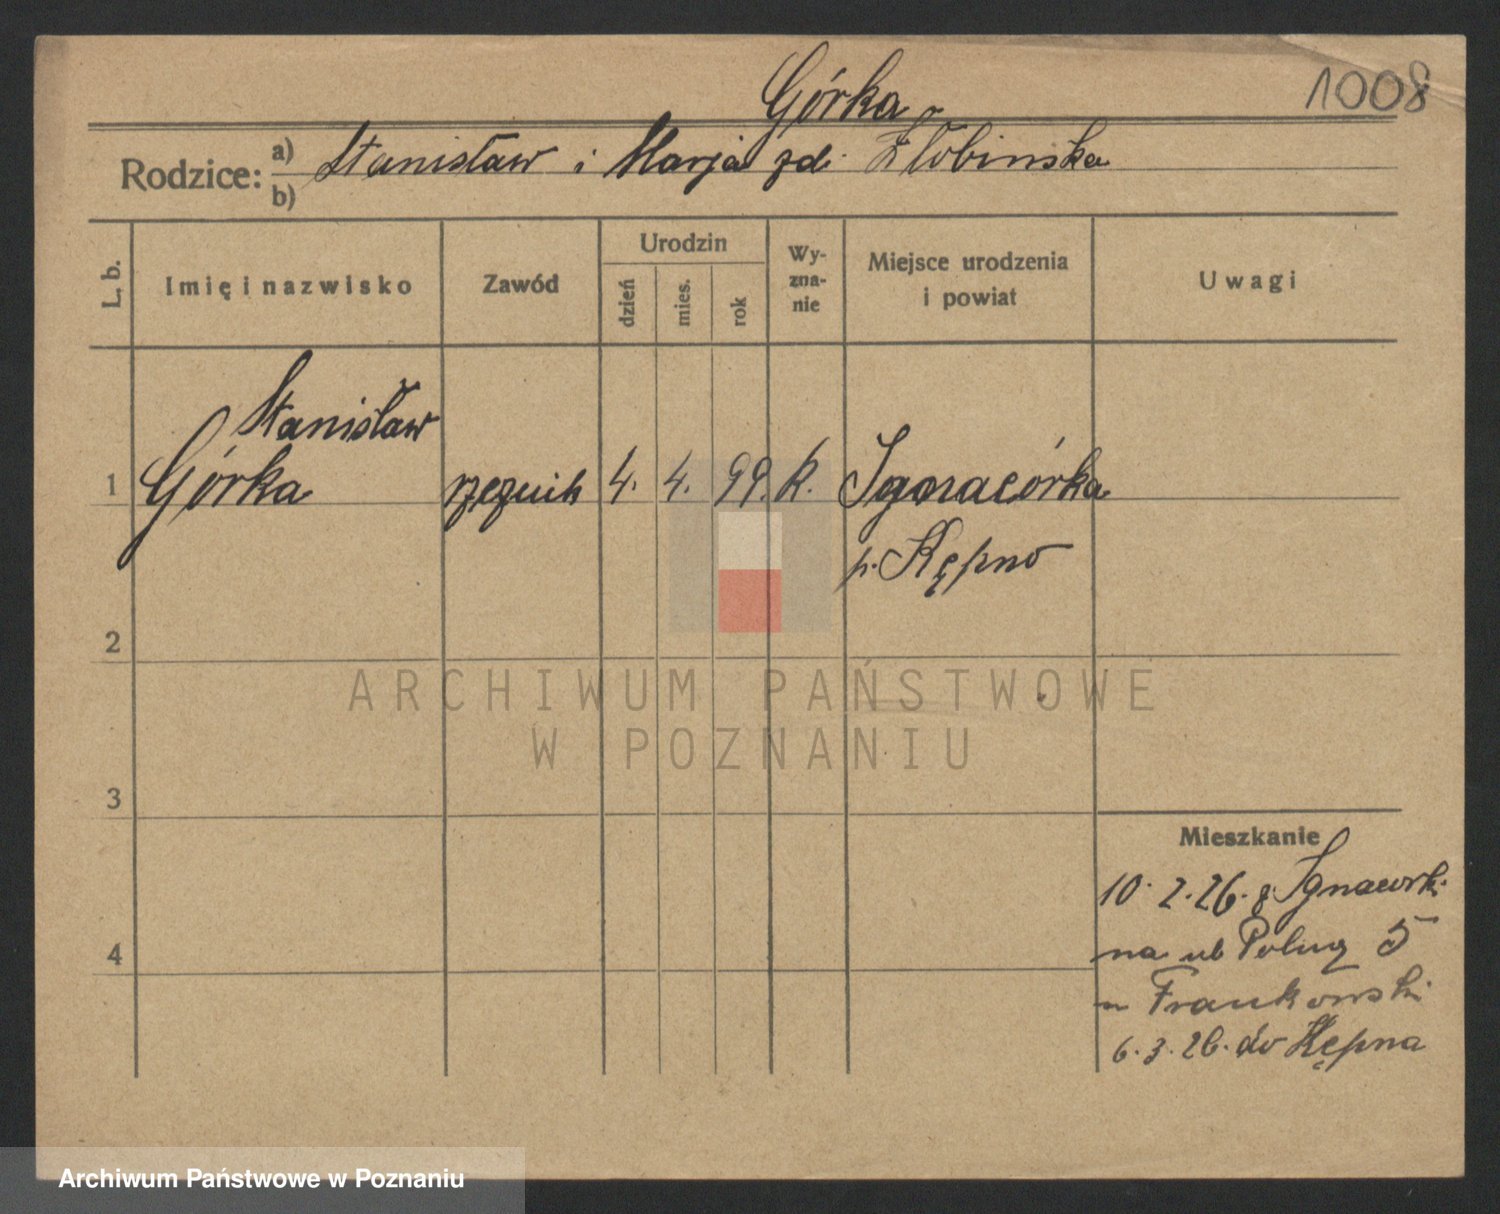 Górka
1008
Rodzice:
a) Stanisław i Marja zd. Żłobinska
b)
L. b.
Imię i nazwisko
Zawód
Urodzin
dzień
mies.
rok
Wy-
zna-
nie
Miejsce urodzenia
i powiat
Uwagi
Stanisław
1 Górka rzeznik 4. 4. 99. k. Ignacórka
p. Kępno
2
ARCHIWUM PAŃSTWOWE
W POZNANIU
3
Mieszkanie
10. 2. 26. z Ignacorki
na ul Polną 5
Frankowski
4
6. 3. 26. do Kępna
Archiwum Państwowe w Poznaniu